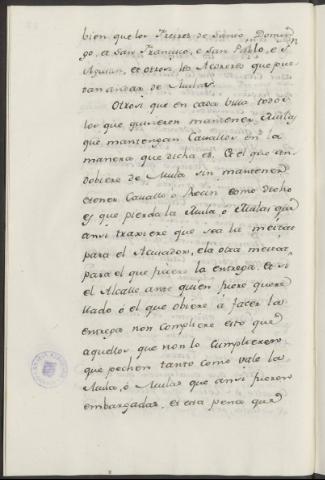 bien que los Freires de Santo Domin-
go, et San Francisco, e San Pablo, e S.n
Agustin, et otrosi los Azoreros que pue-
dan andar de Mulas.
Otrosi que en cada villa todos
los que quisieren mantener Mulas
que mantengan Cavallos en la
manera que dicha es, Et el que an-
dobiere de Mula sin mantener
et tener Cavallo ó Rocin como dicho
es que pierda la Mula ó Mulas que
ansi traxiere que sea la meitat
para el Acusador, e la otra meitat
para el que ficiere la entrega. Et si
el Alcalle ante quien fuere quere-
llado ó el que obiere á facer la
entrega non compliere esto que
aquellos que non lo cumplieren
que pechen tanto como vale la
Mula, ó Mulas que ansi fueren
embargadas, et esta pena que